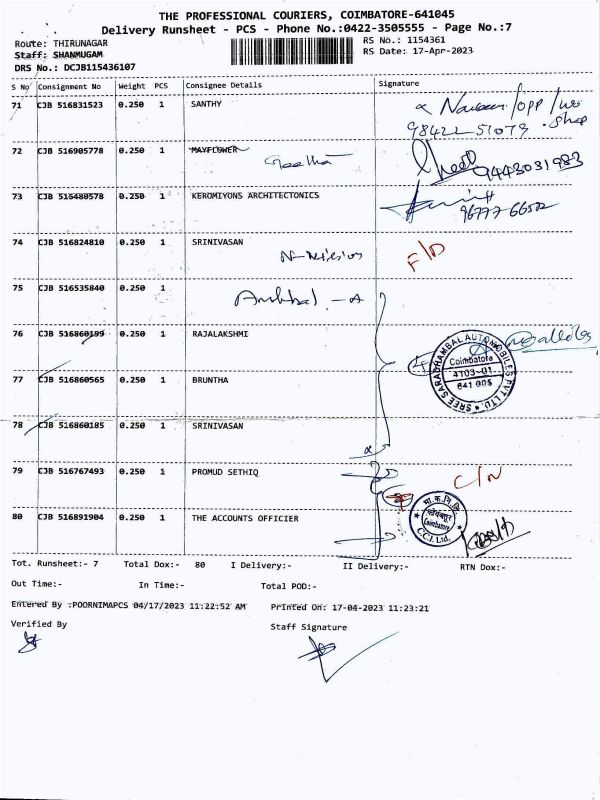 THE PROFESSIONAL COURIERS, COIMBATORE-641045
Delivery Runsheet - PCS - Phone No.:0422-3505555 - Page No.:7
Route: THIRUNAGAR
RS No.: 1154361
Staff: SHANMUGAM
RS Date: 17-Apr-2023
DRS No.: DCJB115436107
S No Consignment No Weight PCS Consignee Details Signature
71 CJB 516831523 0.250 1 SANTHY
98422 51079 . shop
72 CJB 516905778 0.250 1 MAYFLOWER Geetha
9443031983
73 CJB 516480578 0.250 1 KEROMIYONS ARCHITECTONICS
74 CJB 516824810 0.250 1 SRINIVASAN F/D
75 CJB 516535840 0.250 1
76 CJB 516860199 0.250 1 RAJALAKSHMI
SREE SARADHAMBAL AUTOMOBILES PVT LTD.
Coimbatore
641 005
77 CJB 516860565 0.250 1 BRUNTHA
78 CJB 516860185 0.250 1 SRINIVASAN
79 CJB 516767493 0.250 1 PROMUD SETHIQ C/N
80 CJB 516891904 0.250 1 THE ACCOUNTS OFFICIER
Coimbatore
C.C.I. Ltd.
Tot. Runsheet:- 7 Total Dox:- 80 I Delivery:- II Delivery:- RTN Dox:-
Out Time:- In Time:- Total POD:-
Entered By :POORNIMAPCS 04/17/2023 11:22:52 AM Printed On: 17-04-2023 11:23:21
Verified By Staff Signature